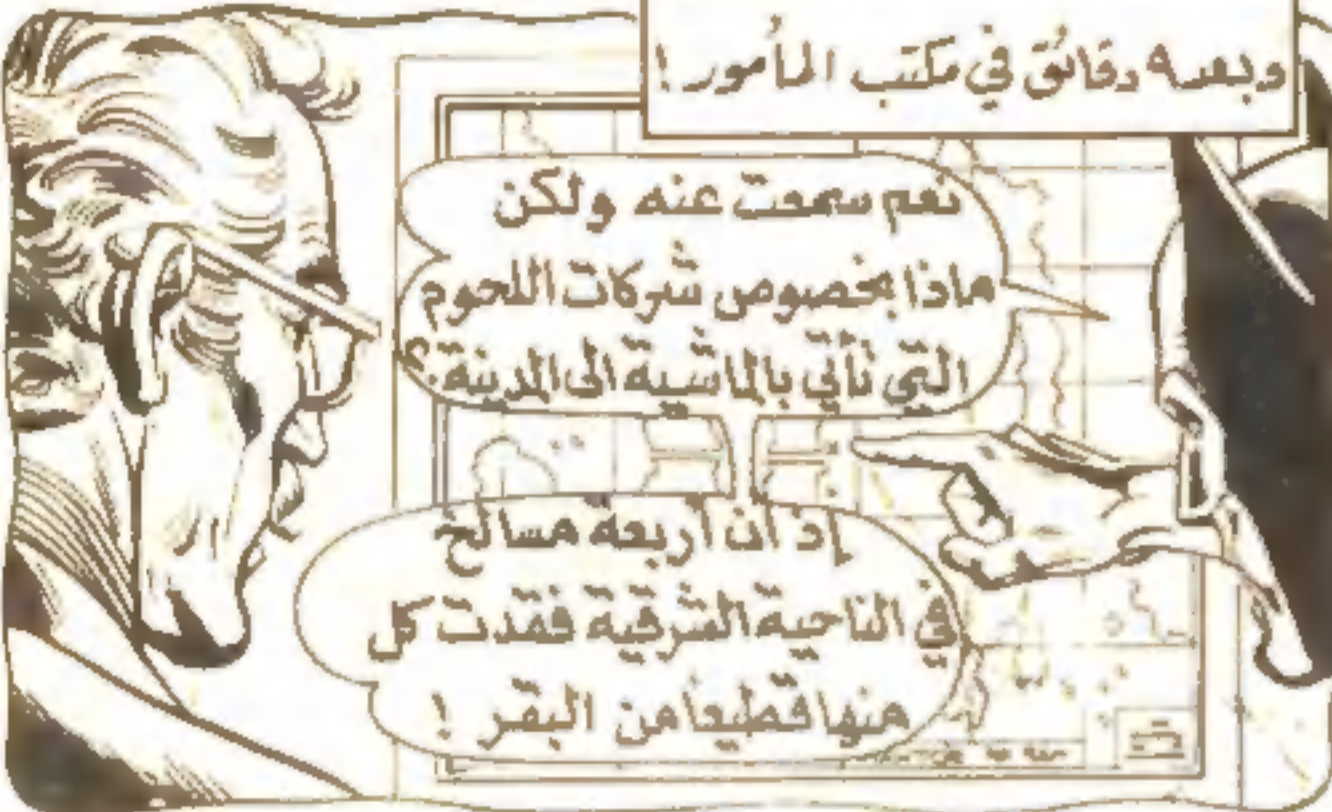 وبعد ٥ دقائق في مكتب المأمور!
نعم سمعت عنه ولكن
ماذا بخصوص شركات اللحوم
التي تأتي بالماشية الى المدينة؟
إذ ان أربعه مسالخ
في الناحية الشرقية فقدت كل
منها قطيعا من البقر !